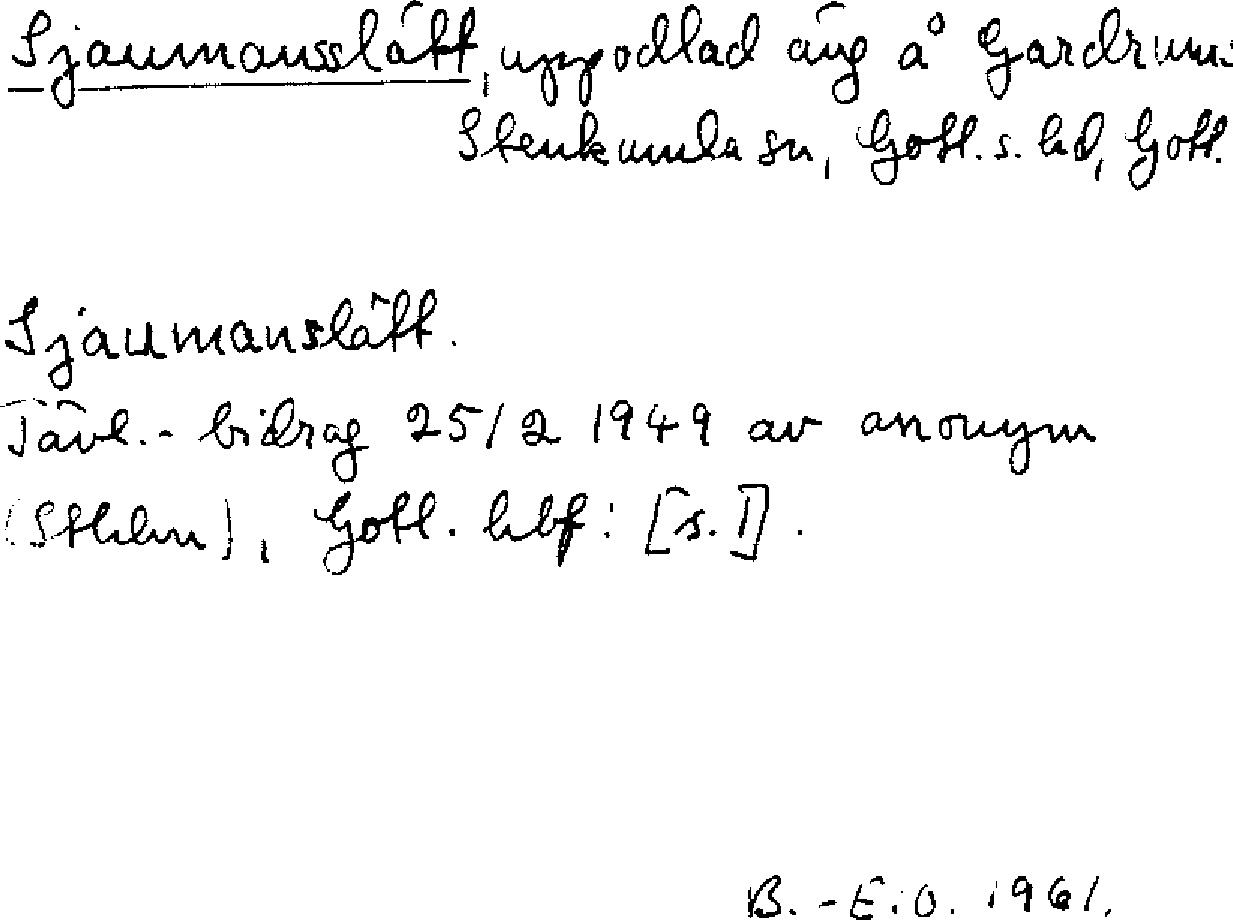 Sjaumansslått, uppodlad äng å Gardrum:
Stenkumla sn, Gotl. s. hd, Gotl.
Sjaumanslått.
Tävl.- bidrag 25/2 1949 av anonym
(Sthlm), Gotl. hbf: [s. 1].
B.-E.O. 1961.